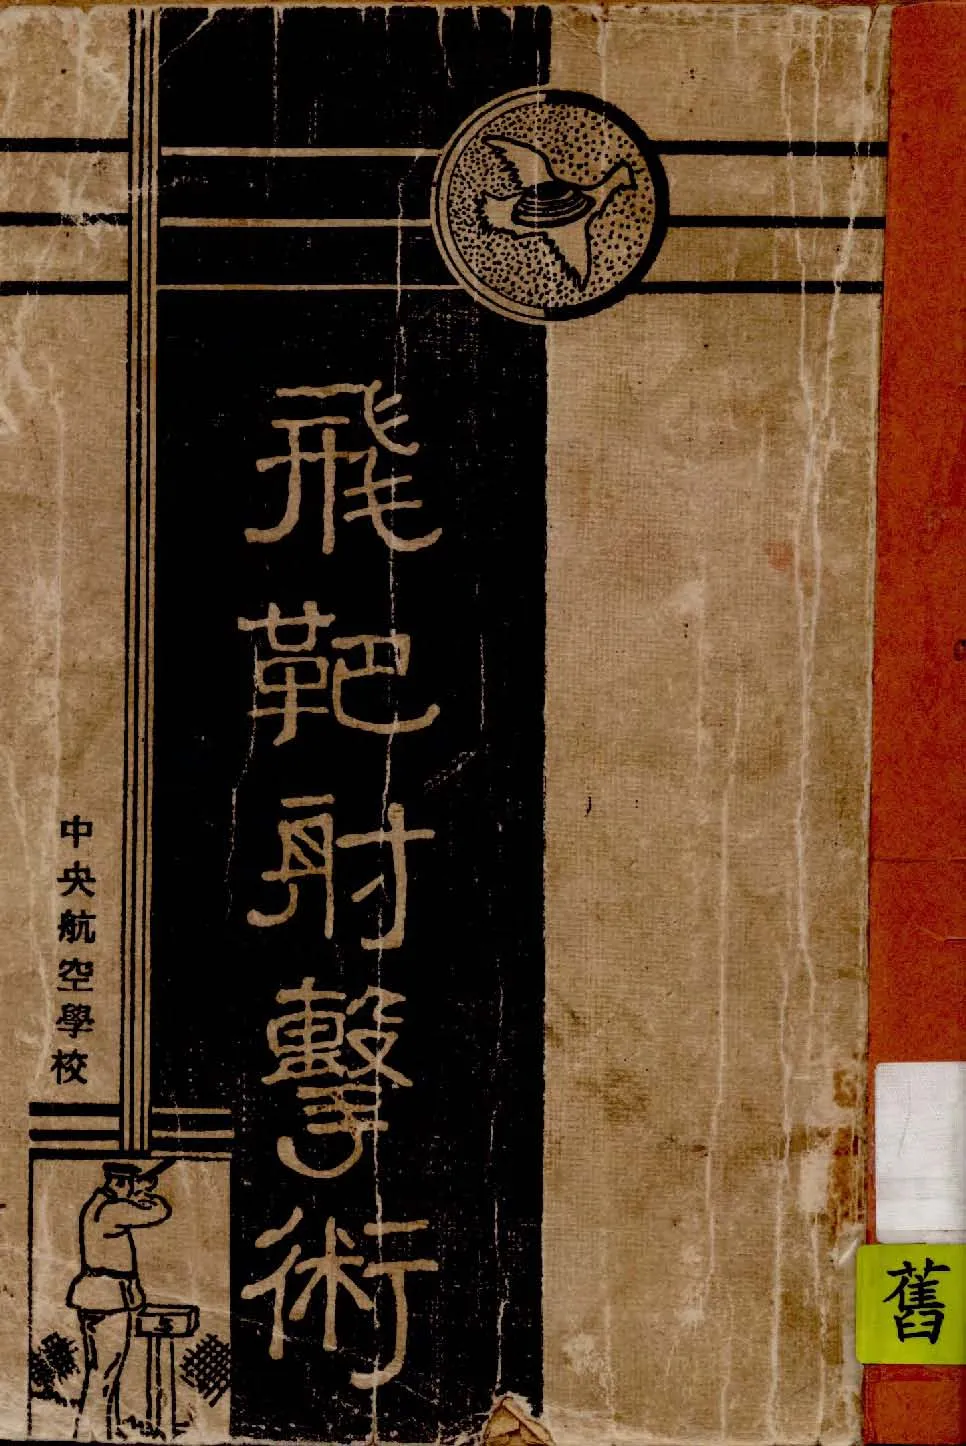 飛靶射擊術
中央航空學校
5
舊